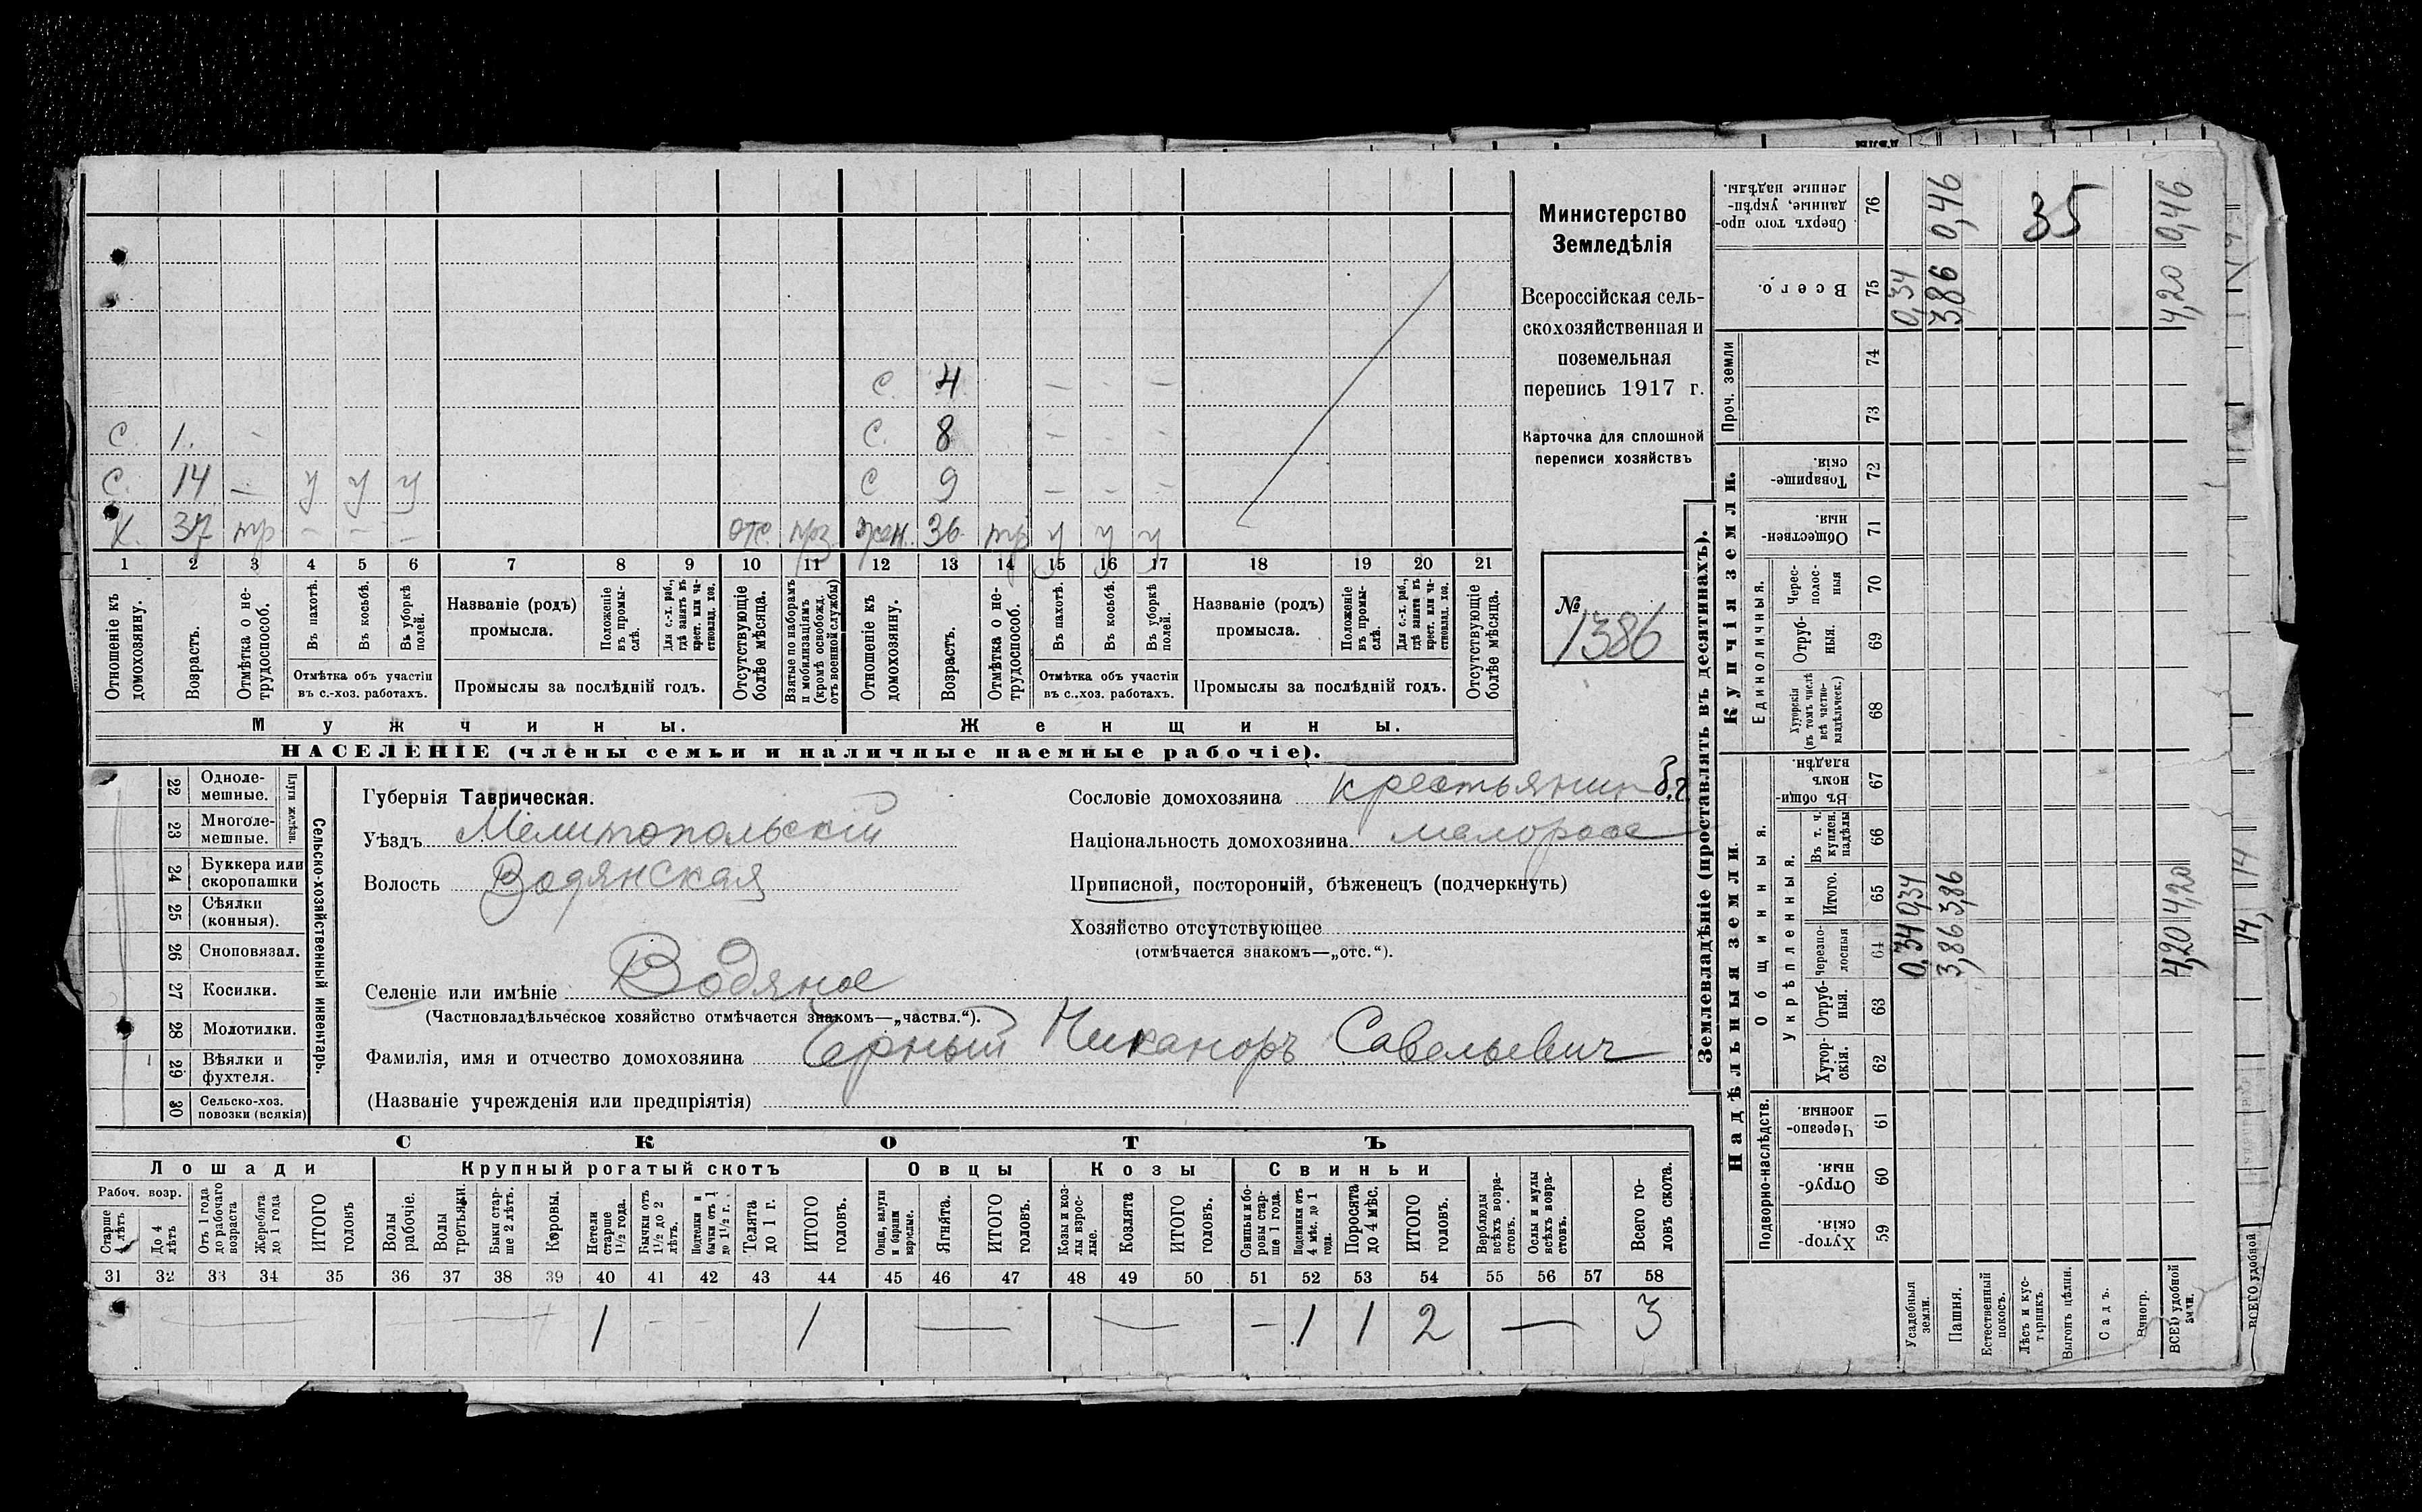 Министерство
Земледѣлія
Всероссійская сель-
скохозяйственная и
поземельная
перепись 1917 г.
Карточка для сплошной
переписи хозяйствъ
№
1386
С. 4 — - —
С. 1. - С. 8 — - —
С. 14 — у у у С 9 — - —
Х. 37 тр — — — отс. прз. жен. 36 тр у у у
1 2 3 4 5 6 7 8 9 10 11 12 13 14 15 16 17 18 19 20 21
Отношеніе къ домохозяину.
Возрастъ.
Отмѣтка о не-трудоспособ.
Въ пахотѣ.
Въ косьбѣ.
Въ уборкѣ полей.
Отмѣтка объ участіи
въ с.-хоз. работахъ.
Названіе (родъ)
промысла.
Положеніе въ промы-слѣ.
Для с.-х. раб., гдѣ занятъ въ крест. или ча-стновлад. хоз.
Промыслы за послѣдній годъ.
Отсутствующіе болѣе мѣсяца.
Взятые по наборамъ и мобилизаціямъ (кромѣ освобожд. отъ военной службы)
Отношеніе къ домохозяину.
Возрастъ.
Отмѣтка о не-трудоспособ.
Въ пахотѣ.
Въ косьбѣ.
Въ уборкѣ полей.
Отмѣтка объ участіи
въ с..хоз. работахъ.
Названіе (родъ)
промысла.
Положеніе въ промы-слѣ.
Для с.-х. раб., гдѣ занята въ крест. или ча-стновлад. хоз.
Промыслы за послѣдній годъ.
Отсутствующіе болѣе мѣсяца.
Мужчины. Женщины.
НАСЕЛЕНІЕ (члены семьи и наличные наемные рабочіе).
Сельско-хозяйственный инвентарь.
Плуги желѣзн.
22 Одноле-мешные.
23 Многоле-мешные.
24 Буккера или скоропашки
25 Сѣялки (конныя).
26 Сноповязал.
27 Косилки.
28 Молотилки.
29 Вѣялки и фухтеля.
30 Сельско-хоз. повозки (всякія)
Губернія Таврическая.
Уѣздъ Мелитопольскій
Волость Водянская
Селеніе или имѣніе Водяное
(Частновладѣльческое хозяйство отмѣчается знакомъ—„частвл.“).
Фамилія, имя и отчество домохозяина Черный Никаноръ Савельевич
(Названіе учрежденія или предпріятія)
Сословіе домохозяина крестьянин
Національность домохозяина малоросс
Приписной, посторонній, бѣженецъ (подчеркнуть)
Хозяйство отсутствующее
(отмѣчается знакомъ—„отс.“).
СКОТЪ
Лошади Крупный рогатый скотъ Овцы Козы Свиньи
Рабоч. возр.
Старше 4 лѣтъ
До 4 лѣтъ
Отъ 1 года до рабочаго возраста
Жеребята до 1 года
ИТОГО головъ
Волы рабочіе.
Волы третьяки.
Быки стар-ше 2 лѣтъ.
Коровы.
Нетели старше 1½ года.
Бычки отъ 1½ до 2 лѣтъ.
Подтелки и бычки отъ 1 до 1½ г.
Телята до 1 г.
ИТОГО головъ.
Овцы, валухи и бараны взрослые.
Ягнята.
ИТОГО головъ.
Козы и коз-лы взрос-лые.
Козлята
ИТОГО головъ.
Свиньи и бо-ровы стар-ше 1 года.
Подсвинки отъ 4 мѣс. до 1 года.
Поросята до 4 мѣс.
ИТОГО головъ.
Верблюды всѣхъ возра-стовъ.
Ослы и мулы всѣхъ возра-стовъ.
Всего го-ловъ скота.
31 32 33 34 35 36 37 38 39 40 41 42 43 44 45 46 47 48 49 50 51 52 53 54 55 56 57 58
— — 1 - - 1 — — — 1 1 2 — 3
Землевладѣніе (проставлять въ десятинахъ).
Надѣльныя земли. Купчія земли. Проч. земли
Подворно-наслѣдств. Общинныя. Единоличныя.
Укрѣпленныя.
Хутор-скія. 59
Отруб-ныя. 60
Черезпо-лосныя. 61
Хутор-скія. 62
Отруб-ныя. 63
Черезпо-лосныя 64
Итого. 65
Въ т. ч. куплен. надѣлы 66
Въ общи-номъ владѣн. 67
Хуторскія (въ томъ числѣ всѣ частно-владѣльческ.) 68
Отруб-ныя. 69
Черес-полос-ныя 70
Обществен-ныя. 71
Товарище-скія. 72
73
74
Всего. 75
Сверхъ того про-данные, укрѣп-ленные надѣлы. 76
Усадебныя земли. 0,34 0,34 0,34
Пашня. 3,86 3,86 3,86 0,46
Естественный покосъ.
Лѣсъ и кус-тарникъ.
Выгонъ цѣлин.
Садъ.
Виногр.
ВСЕГО удобной земли. 4,20 4,20 4,20 0,46
35
ВСЕГО удобной
14, 14